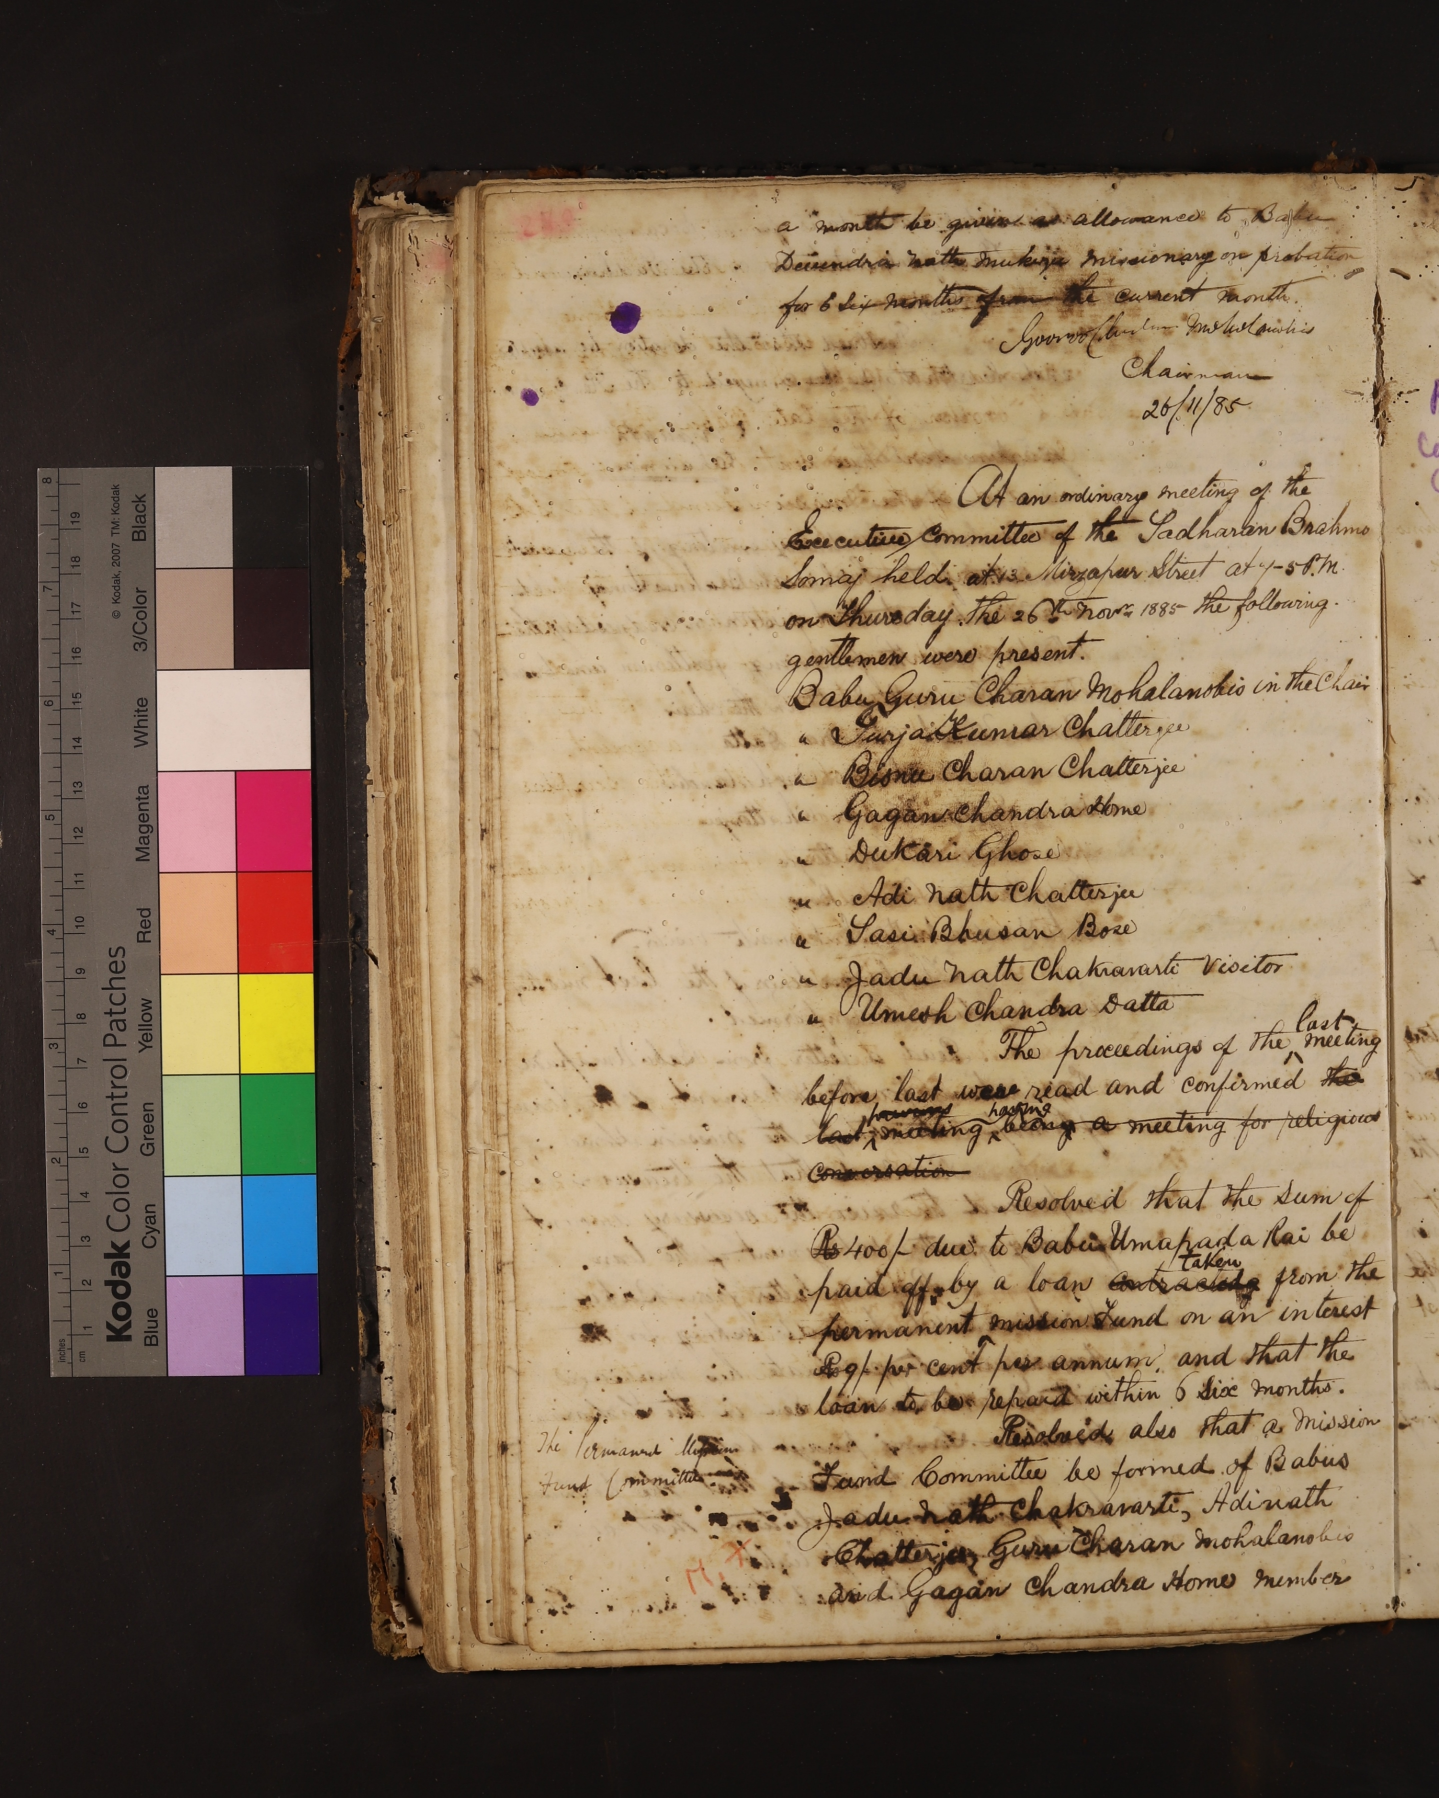 a month be given as allowance to Babu
Devendra nath Mukerje missionary on probation
for 6 six months from the current month.
Gooroo Churn Moholanobis
Chairman
26/11/85
At an ordinary meeting of the
Executive Committee of the Sadharan Brahmo
Somaj held at 13 Mirzapur Street at 7-5 P.M.
on Thursday the 26th Novr. 1885 the following
gentlemen were present.
Babu Guru Charan Mohalanobis in the Chair
" Kumar Chatterjee
" Bisnu Charan Chatterjee
" Gagan Chandra Home
" Dukari Ghose
" Adi Nath Chatterjee
" Sasi Bhusan Bose
" Jadu Nath Chakravarti Visitor
" Umesh Chandra Datta
The proceedings of the last meeting
before last were read and confirmed the
last meeting having being a meeting for religious
conversation
Resolved that the sum of
Rs 400/- due to Babu Umapada Rai be
paid off by a loan contracted taken from the
permanent mission Fund on an interest
Rs 9/- per cent per annum, and that the
loan to be repaid within 6 six months.
Resolved also that a Mission
Fund Committee be formed of Babus
Jadu Nath Chakravarti, Adinath
Chatterjee, Guru Charan Mohalanobis
and Gagan Chandra Home member
The Permanent Mission
Fund Committee
Kodak Color Control Patches
© Kodak, 2007 TM: Kodak
Blue Cyan Green Yellow Red Magenta White 3/Color Black
inches 1 2 3 4 5 6 7 8
cm 1 2 3 4 5 6 7 8 9 10 11 12 13 14 15 16 17 18 19